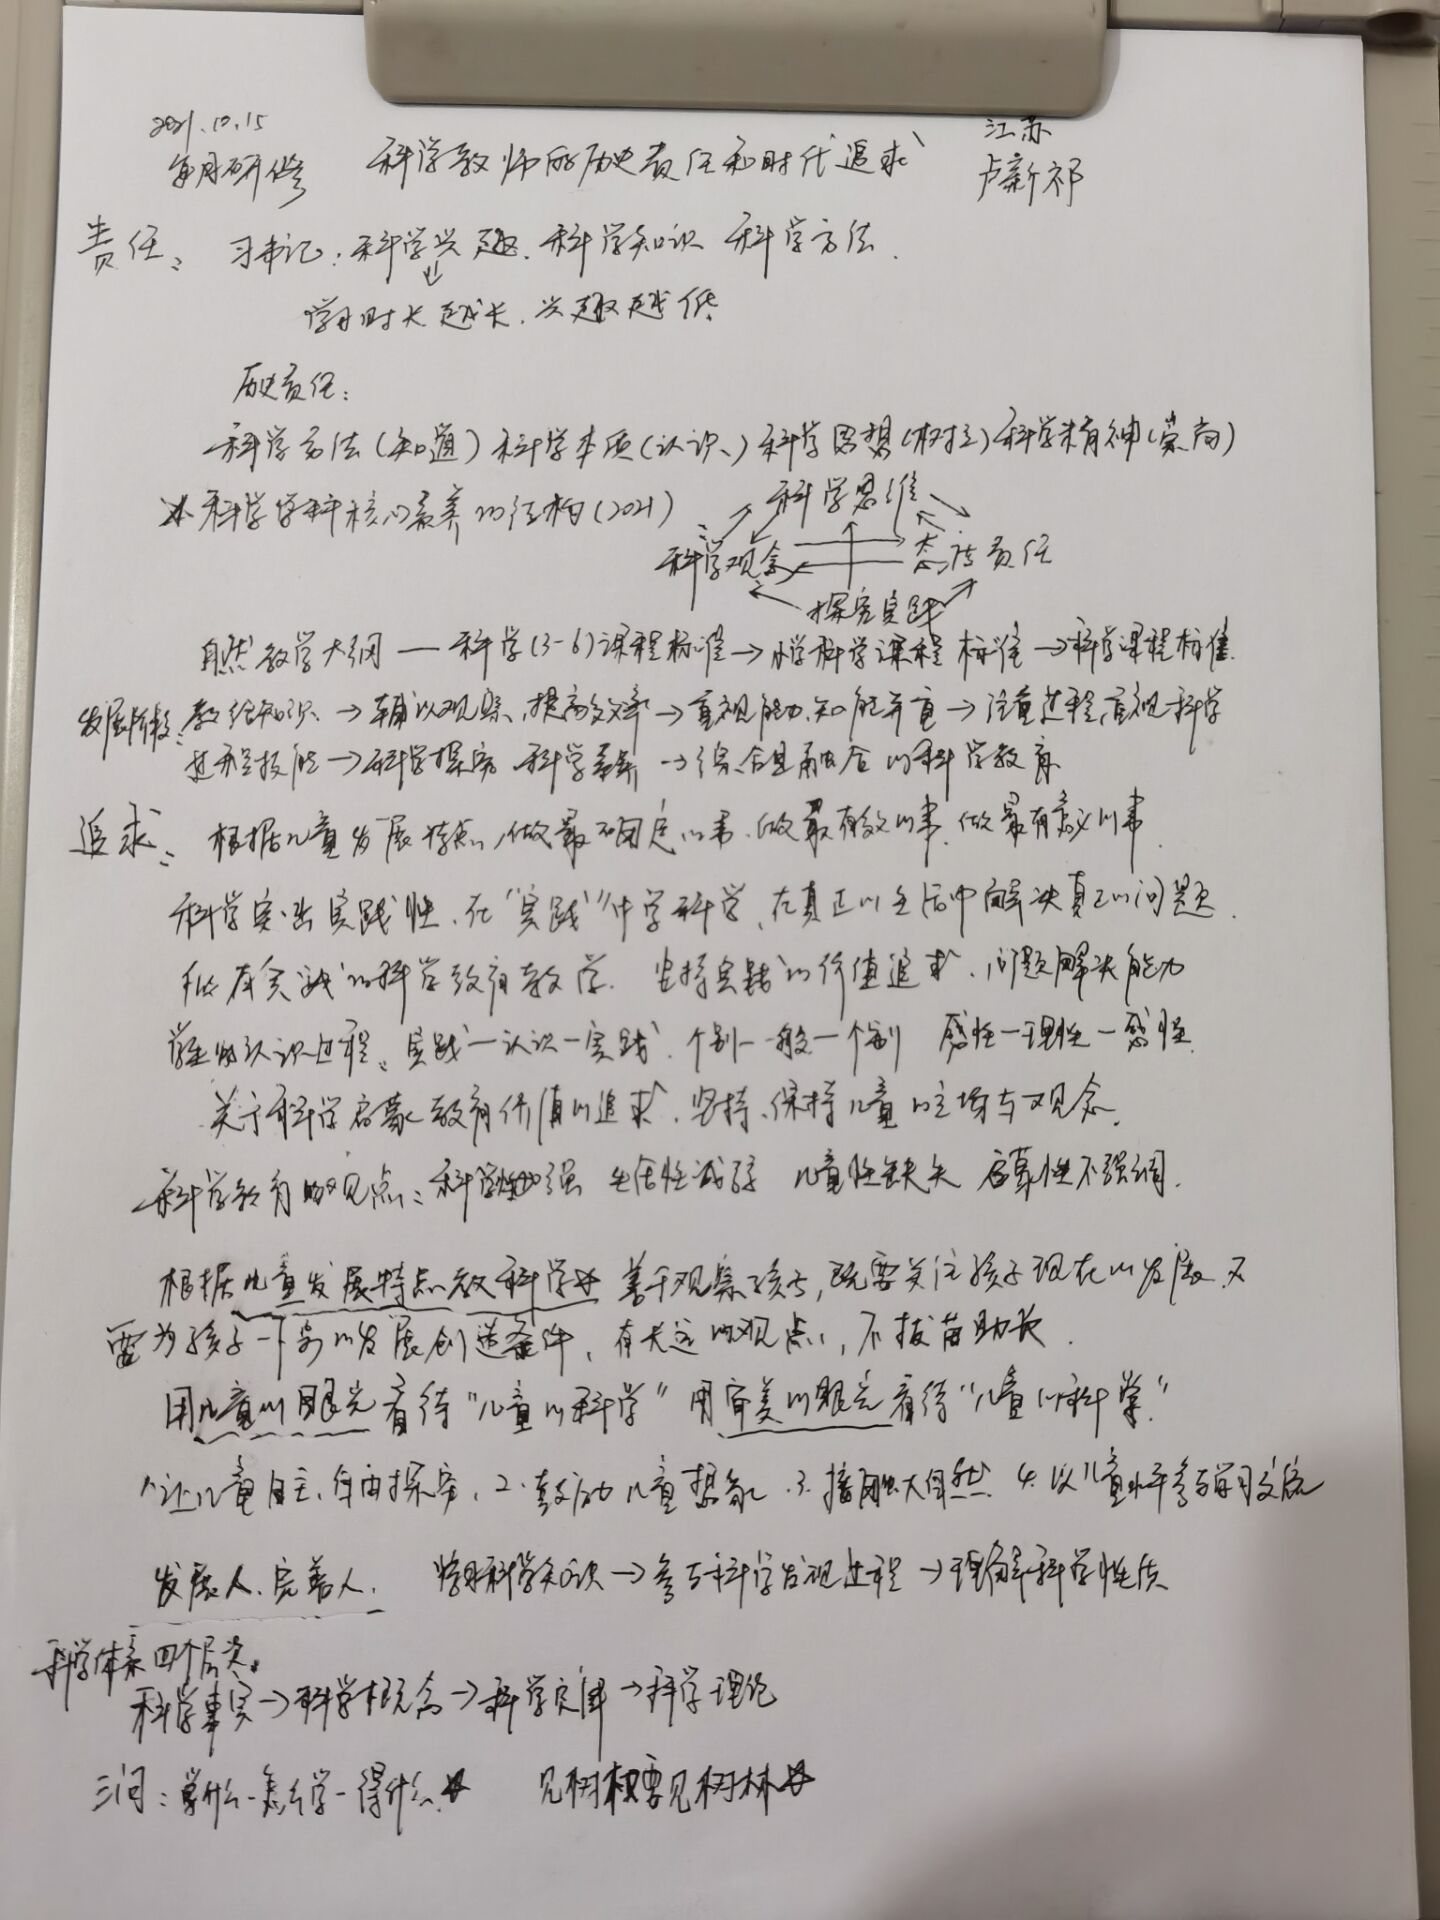 2021.10.15
每月研修 科学教师的历史责任和时代追求
江苏
卢新祁
责任： 习书记：科学兴趣、科学知识 科学方法．
学习时长越长．兴趣越低
历史责任：
科学方法（知道）科学本质（认识、）科学思想（树立）科学精神（崇尚）
科学学科核心素养的结构（2021）
科学思维
科学观念 态度责任
探究实践
自然教学大纲 — 科学（3-6）课程标准→小学科学课程标准→科学课程标准．
发展阶段：教给知识、→辅以观察，提高效率→重视能力，知能并重→注重过程，重视科学
过程技能→科学探究 科学素养→综合且融合的科学教育
追求： 根据儿童发展特点，做最不确定的事、做最有效的事、做最有意义的事．
科学突出实践性、在“实践”中学科学、在真正的生活中解决真正的问题．
实践的科学教育教学．坚持实践的价值追求．问题解决能力
学生的认识过程：实践—认识—实践、个别—一般—个别 感性—理性—感性．
关于科学启蒙教育价值的追求．坚持、保持儿童的立场与观念．
科学教育的观点：科学性加强 生活性减弱 儿童性缺失 启蒙性不强调．
根据儿童发展特点教科学 善于观察孩子，既要关注孩子现在的发展，又
需为孩子下一步的发展创造条件，有长远的观点，不拔苗助长．
用儿童的眼光看待“儿童的科学” 用审美的眼光看待“儿童的科学”
1 让儿童自主、自由探究，2．鼓励儿童想象．3．接触大自然．4．以儿童水平参与学习交流
发展人．完善人． 学习科学知识→参与科学发现过程→理解科学性质
科学体系四个层次．
科学事实→科学概念→科学定律→科学理论
三问：学什么-怎么学-得什么 见树木更要见树林